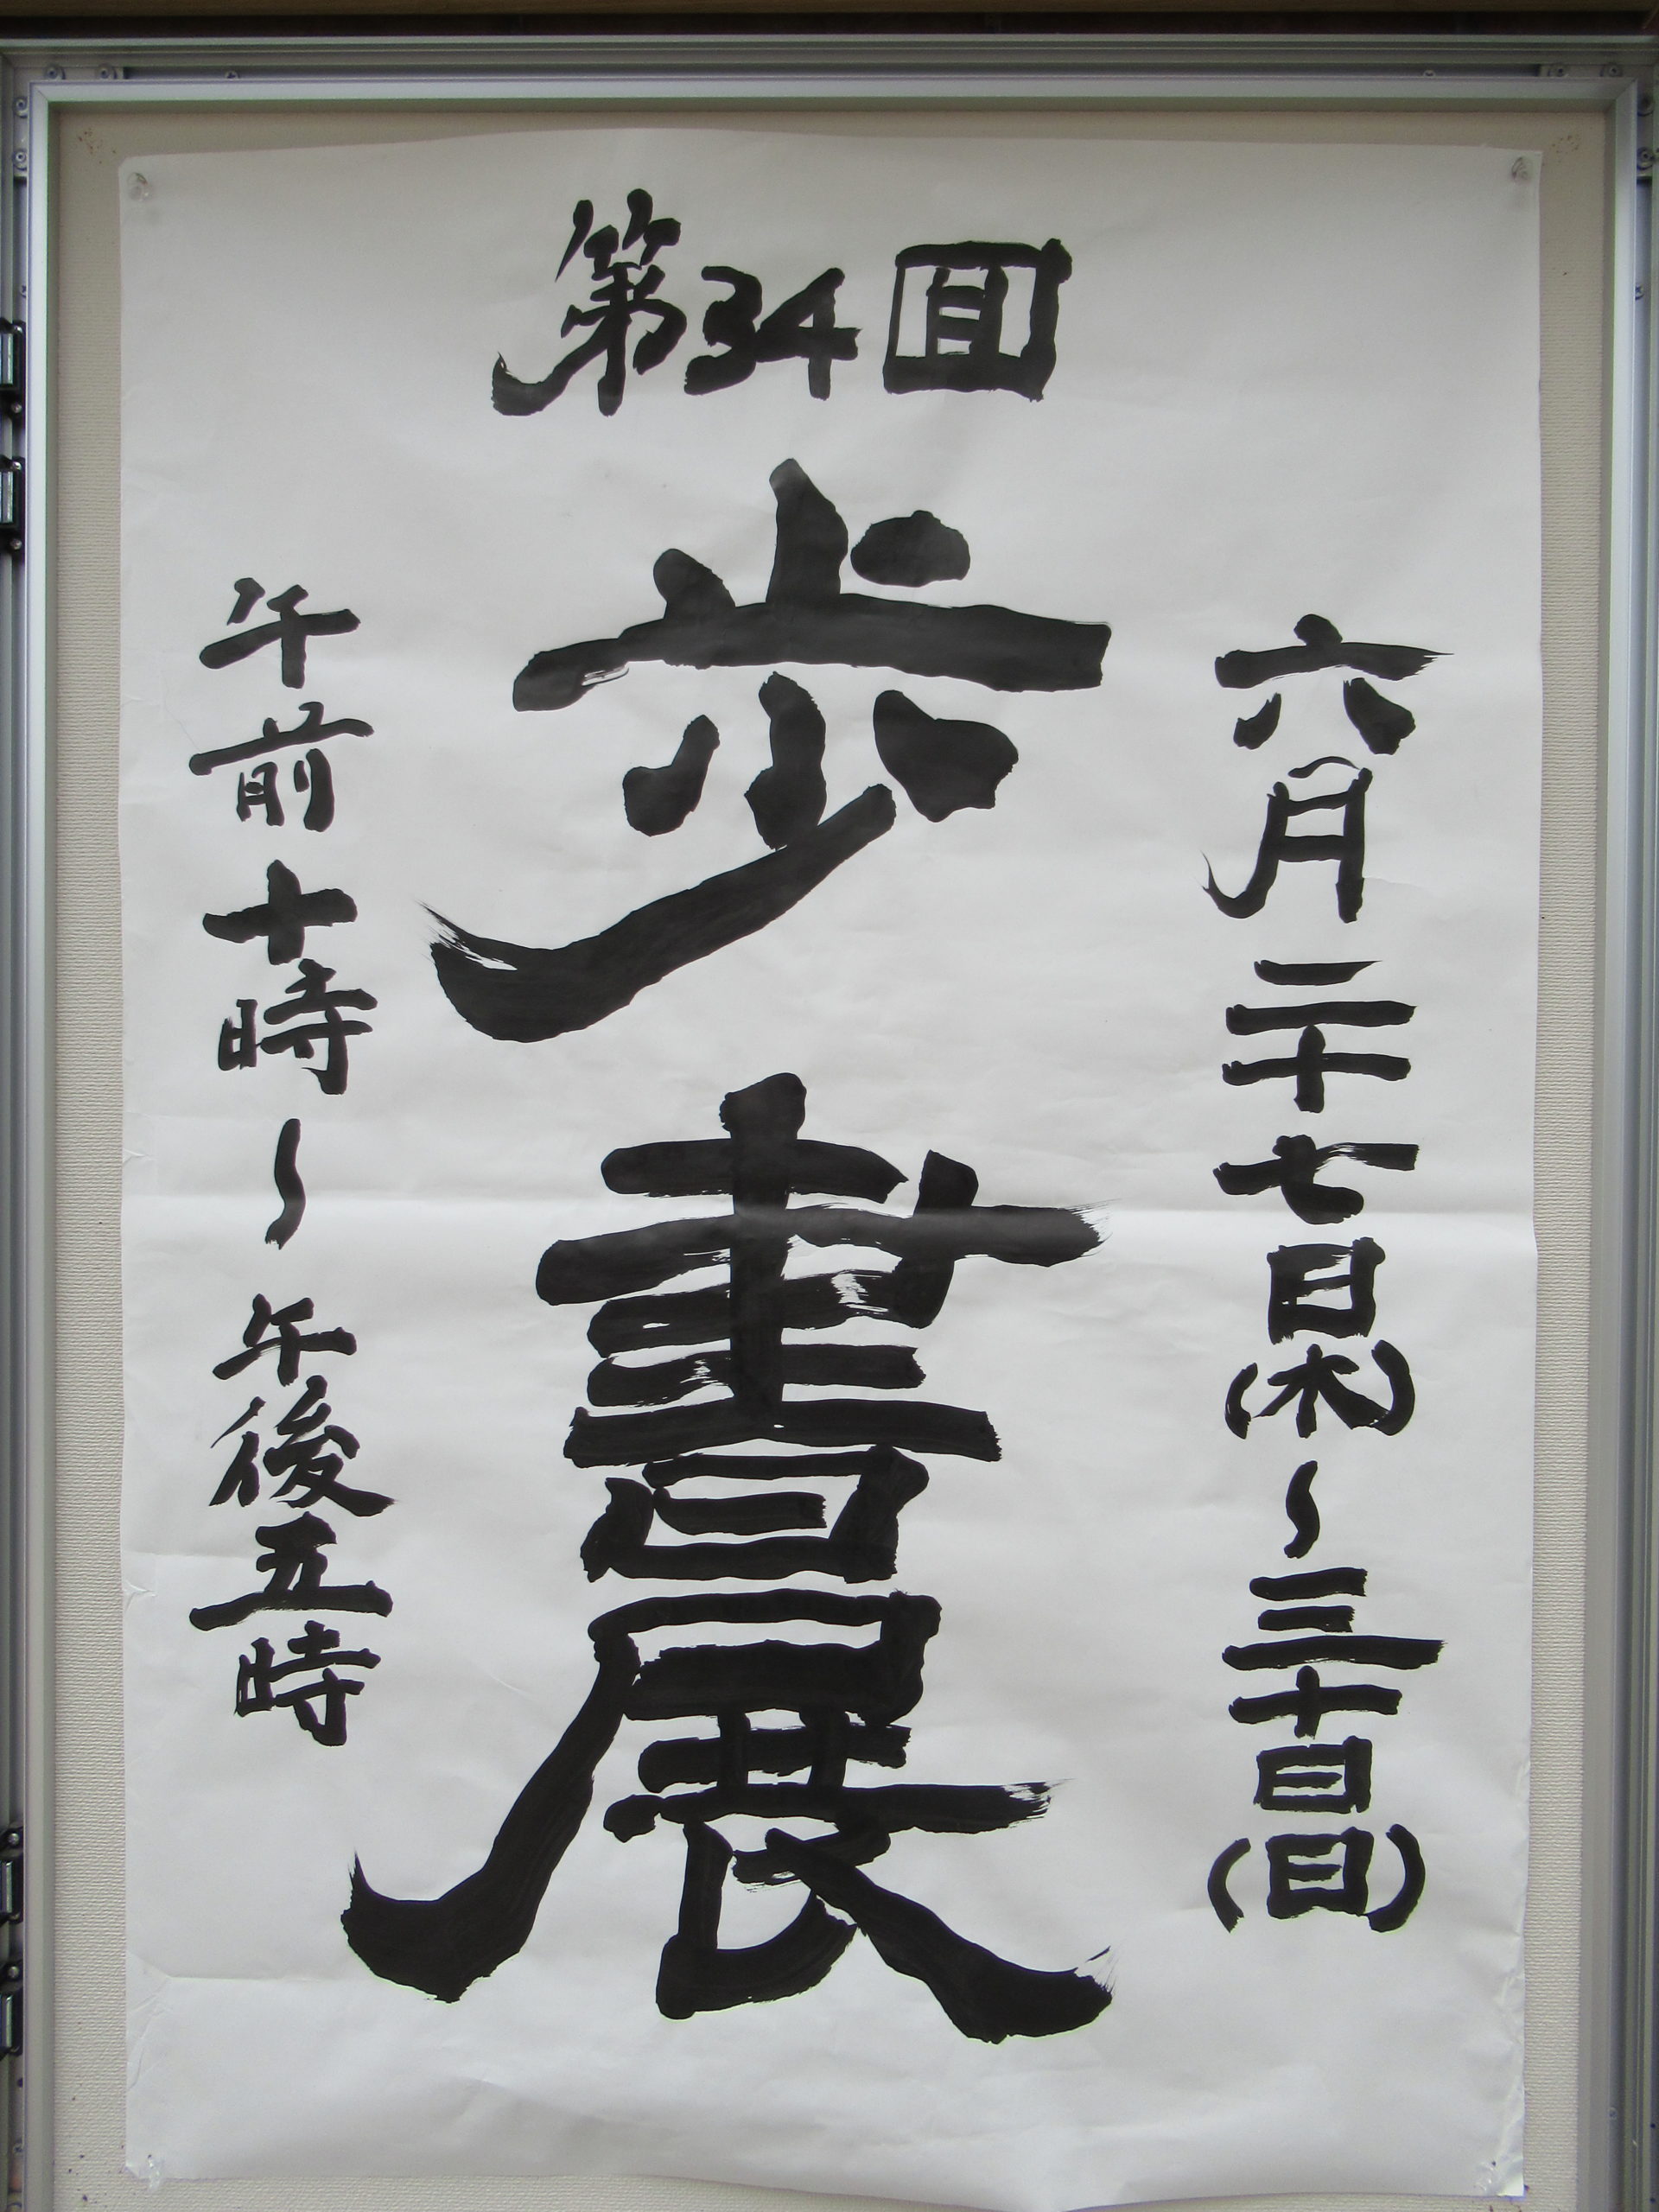 第34回
歩書展
六月二十七日(木)～三十日(日)
午前十時～午後五時